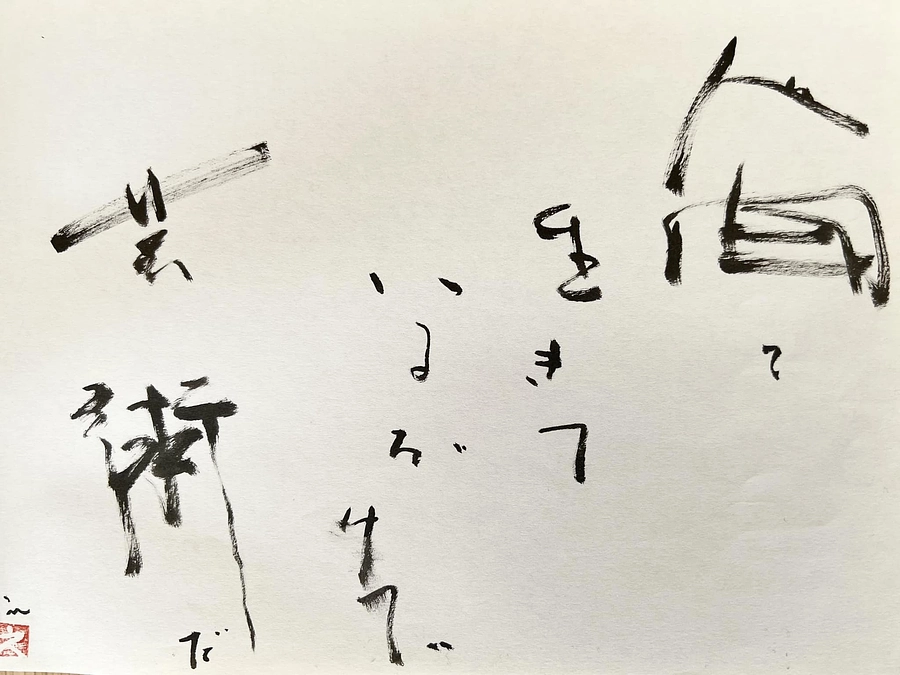 生きて
いるだけで
芸術だ